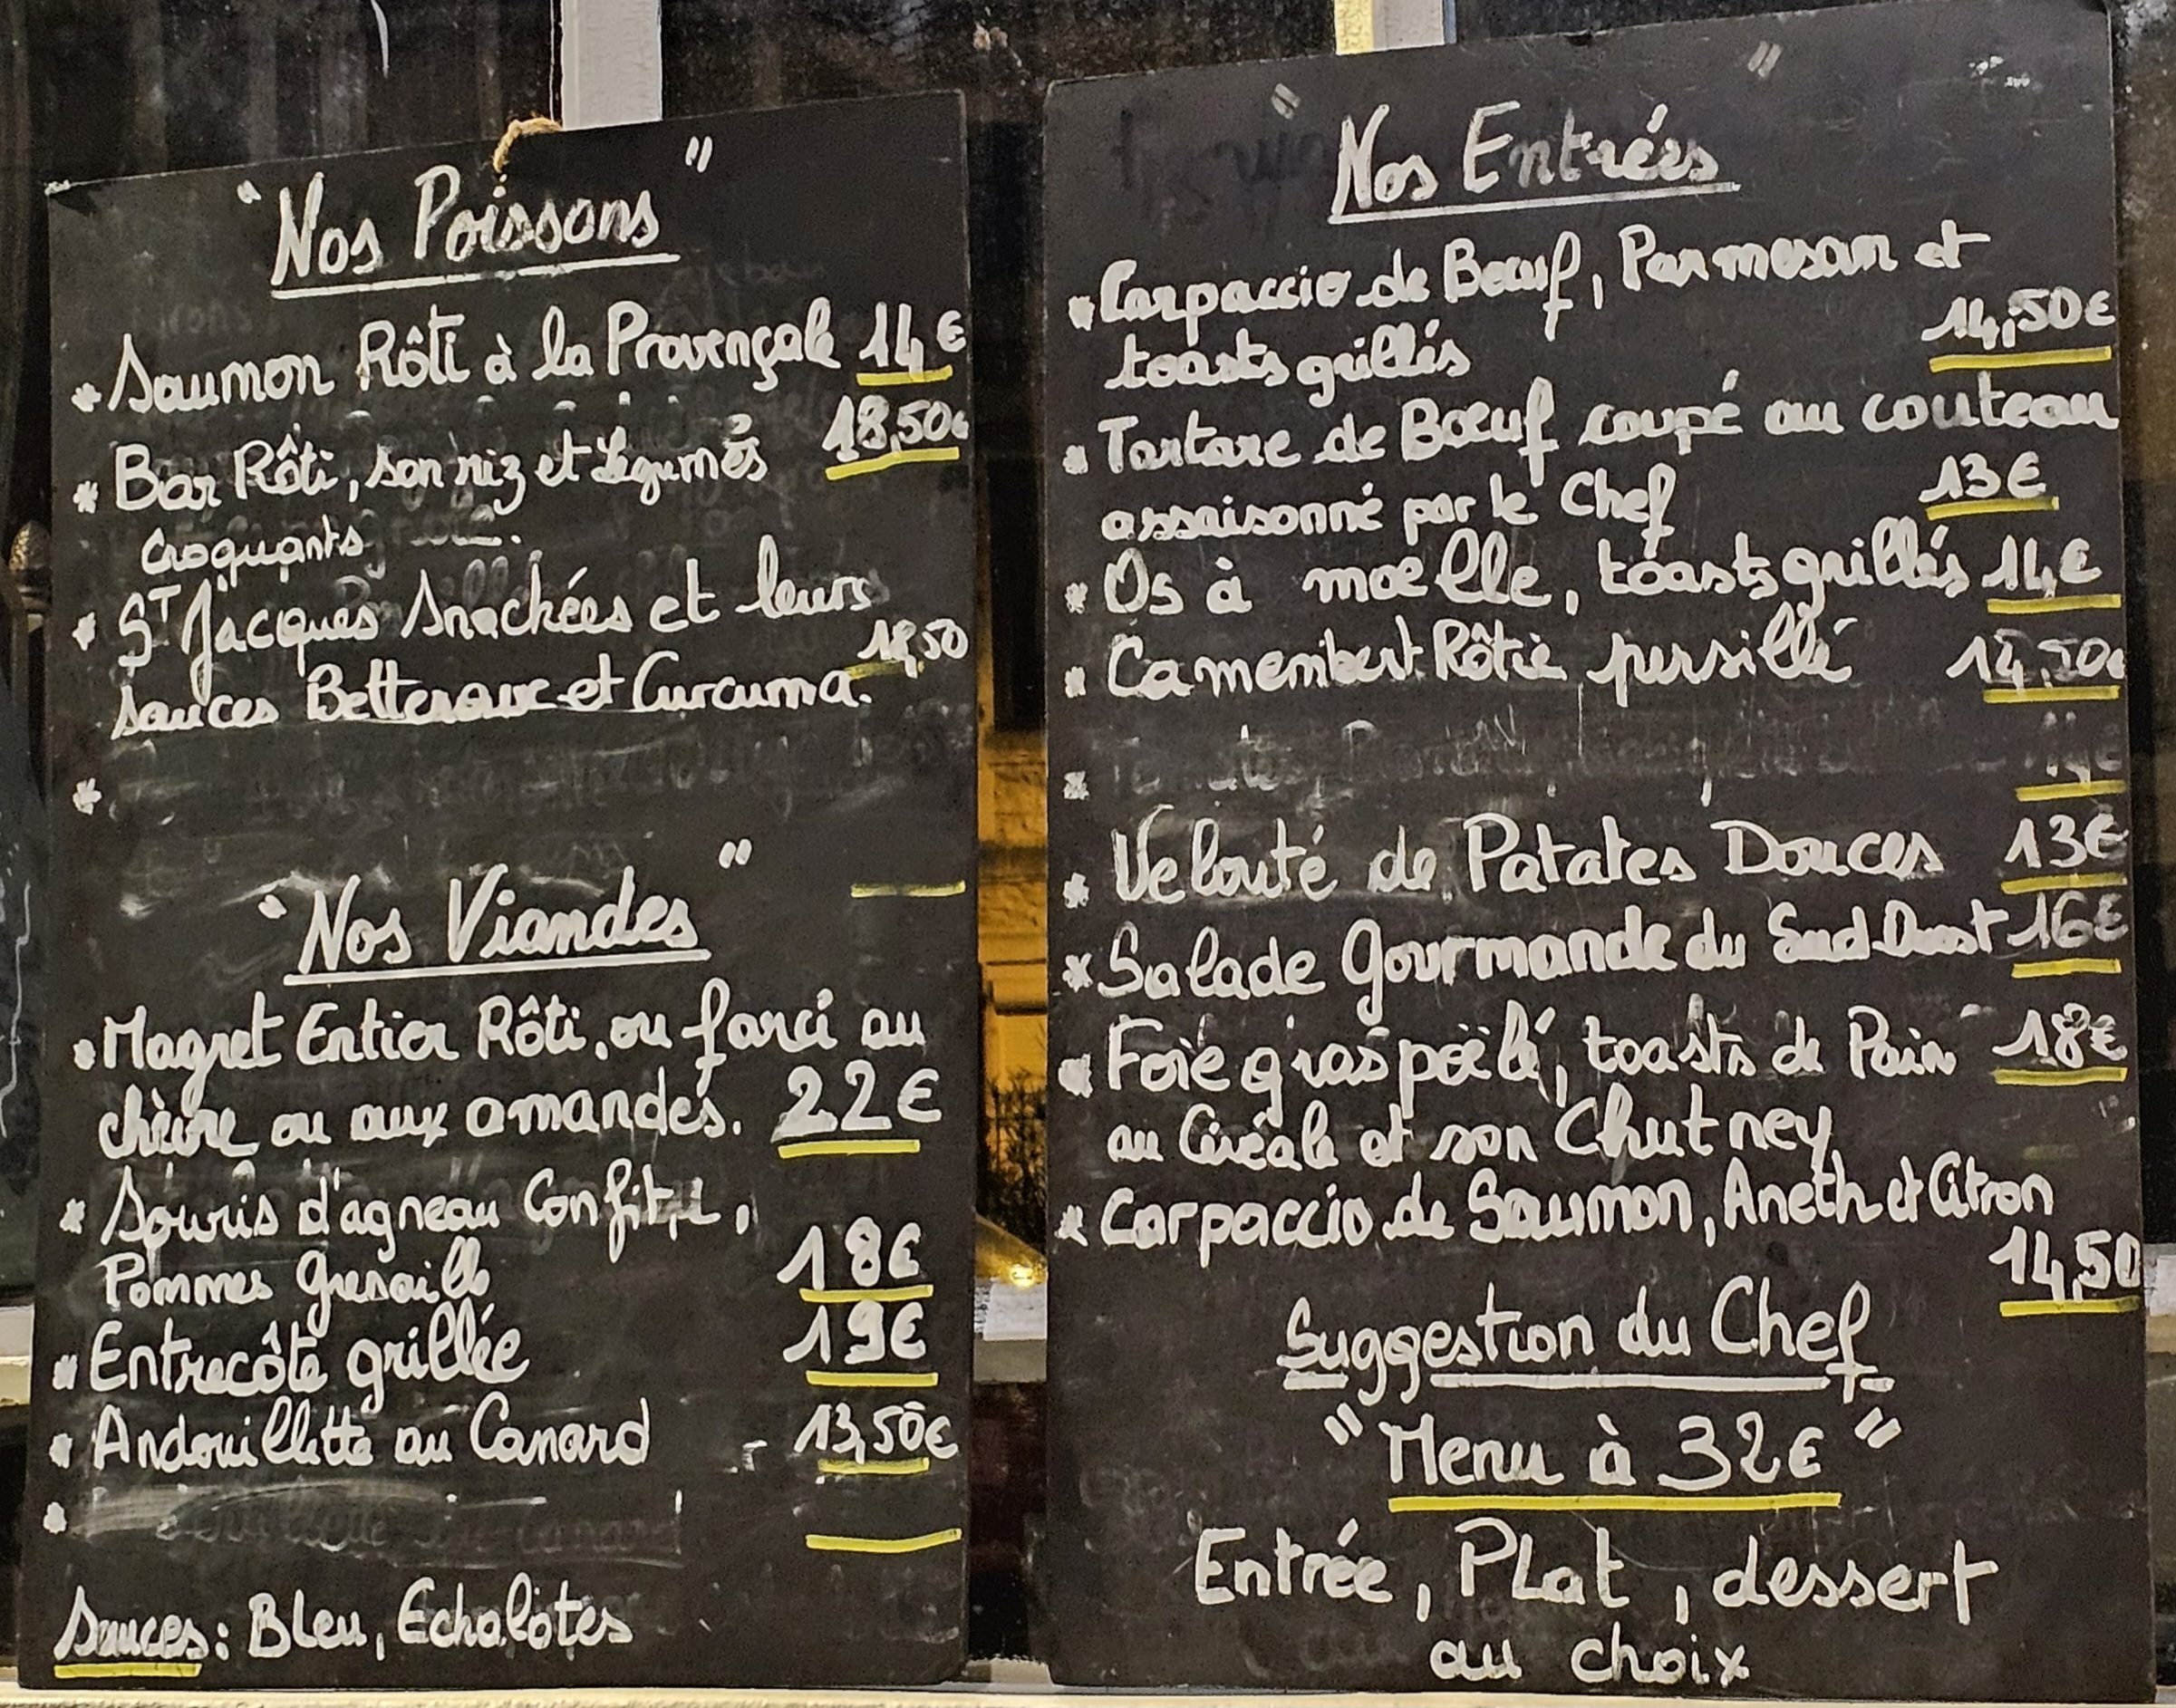 "Nos Poissons"
* Saumon Rôti à la Provençale 14€
* Bar Rôti, son riz et Légumes 18,50€
Croquants
* ST Jacques Snackées et leurs
sauces Betterave et Curcuma.
*
"Nos Viandes"
* Magret Entier Rôti, ou farci au
chèvre ou aux amandes. 22€
* Souris d'agneau Confite,
Pommes Grenaille 18€
* Entrecôte grillée 19€
* Andouillette au Canard 13,50€
*
Sauces: Bleu, Echalotes
"Nos Entrées"
* Carpaccio de Bœuf, Parmesan et
toasts grillés 14,50€
* Tartare de Bœuf coupé au couteau
assaisonné par le Chef 13€
* Os à moelle, toasts grillés 14€
* Camembert Rôtie persillé
*
* Velouté de Patates Douces 13€
* Salade Gourmande du Sud-Ouest 16€
* Foie gras poëlé, toasts de Pain 18€
au Céréale et son Chutney
* Carpaccio de Saumon, Aneth et Citron
14,50
Suggestion du Chef
"Menu à 32€"
Entrée, PLat, dessert
au choix